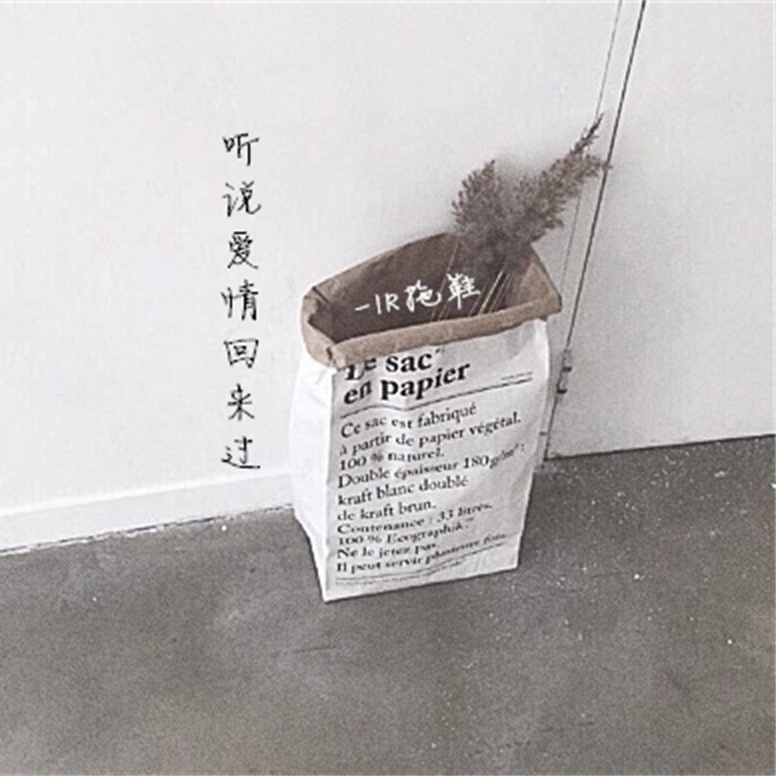 听说爱情回来过
一IR拖鞋
Le sac
en papier
Ce sac est fabriqué
à partir de papier végétal.
100 % naturel.
Double épaisseur 180g/m² :
kraft blanc doublé
de kraft brun.
Contenance : 33 litres.
100 % Ecographik™
Ne le jetez pas.
Il peut servir plusieurs fois.